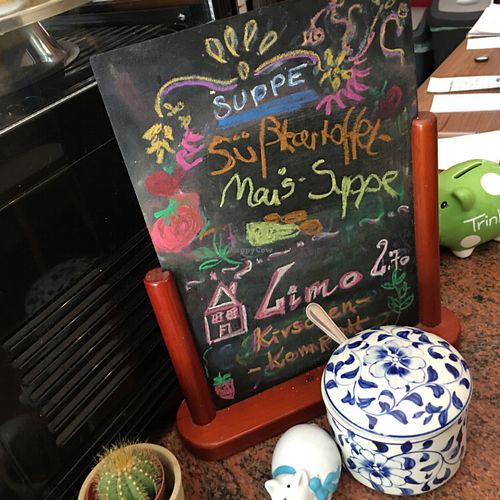 SUPPE
Süßkartoffel-
Mais-Suppe
Limo 2.70
Kirschen-
-Kompott
Trink